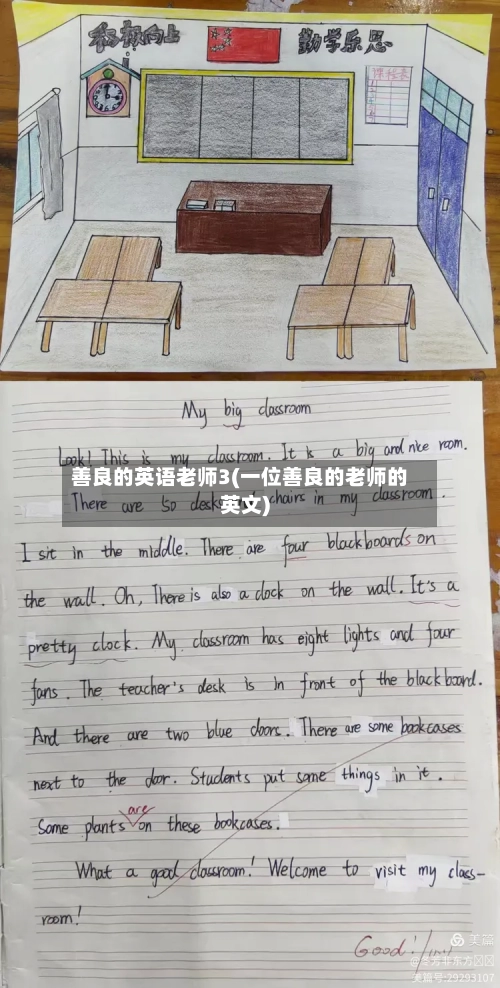 积极向上
勤学乐思
课程表
My big classroom
Look! This is my classroom. It is a big and nice room.
善良的英语老师3(一位善良的老师的
英文)
There are 50 desks and chairs in my classroom.
I sit in the middle. There are four blackboards on
the wall. Oh, There is also a clock on the wall. It's a
pretty clock. My classroom has eight lights and four
fans. The teacher's desk is in front of the blackboard.
And there are two blue doors. There are some bookcases
next to the door. Students put some things in it.
are
Some plants on these bookcases.
What a good classroom! Welcome to visit my class-
room!
Good!
美篇
美篇号:29293107